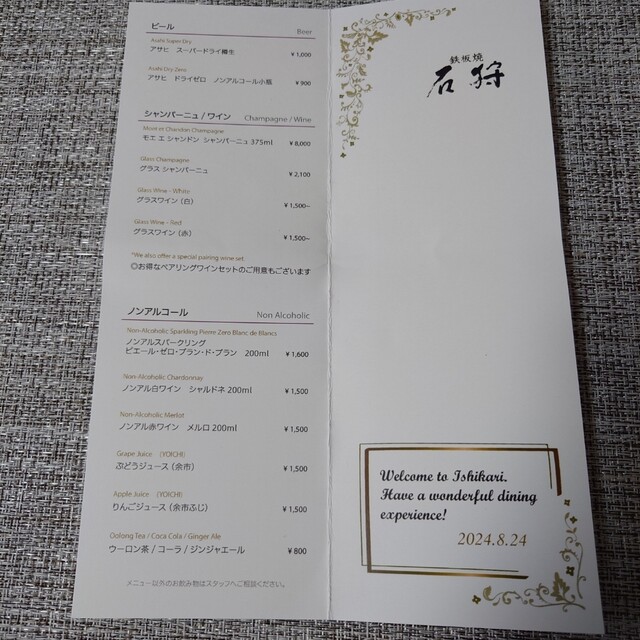 ビール
Beer
Asahi Super Dry
アサヒ スーパードライ樽生 ¥1,000
Asahi Dry Zero
アサヒ ドライゼロ ノンアルコール小瓶 ¥900
シャンパーニュ / ワイン
Champagne / Wine
Moët et Chandon Champagne
モエ エ シャンドン シャンパーニュ 375ml ¥8,000
Glass Champagne
グラス シャンパーニュ ¥2,100
Glass Wine - White
グラスワイン (白) ¥1,500~
Glass Wine - Red
グラスワイン (赤) ¥1,500~
*We also offer a special pairing wine set.
◎お得なペアリングワインセットのご用意もございます
ノンアルコール
Non Alcoholic
Non-Alcoholic Sparkling Pierre Zero Blanc de Blancs
ノンアルスパークリング
ピエール・ゼロ・ブラン・ド・ブラン 200ml ¥1,600
Non-Alcoholic Chardonnay
ノンアル白ワイン シャルドネ 200ml ¥1,500
Non-Alcoholic Merlot
ノンアル赤ワイン メルロ 200ml ¥1,500
Grape Juice (YOICHI)
ぶどうジュース (余市) ¥1,500
Apple Juice (YOICHI)
りんごジュース (余市ふじ) ¥1,500
Oolong Tea / Coca Cola / Ginger Ale
ウーロン茶 / コーラ / ジンジャエール ¥800
メニュー以外のお飲み物はスタッフへご相談ください。
鉄板焼
石狩
Welcome to Ishikari.
Have a wonderful dining
experience!
2024.8.24